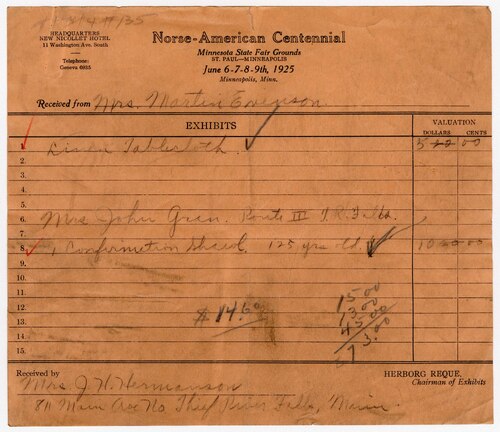 #135
HEADQUARTERS
NEW NICOLLET HOTEL
11 Washington Ave. South
Telephone:
Geneva 6835
Norse-American Centennial
Minnesota State Fair Grounds
ST. PAUL—MINNEAPOLIS
June 6-7-8-9th, 1925
Minneapolis, Minn.
Received from Mrs. Martin Evenson
EXHIBITS
VALUATION
DOLLARS CENTS
1. Linen Tablecloth. 00
2.
3.
4.
5.
6. Mrs. John Gran. Route III T.R. Falls.
7.
8. 1 Confirmation Shawl. 125 yrs old. 10 00
9.
10.
11.
12. $14.60 15.00
13. 13.00
14. 45.00
15. 73.00
Received by
Mrs. J. H. Hermanson
HERBORG REQUE.
Chairman of Exhibits
811 Main Ave No. Thief River Falls, Minn.